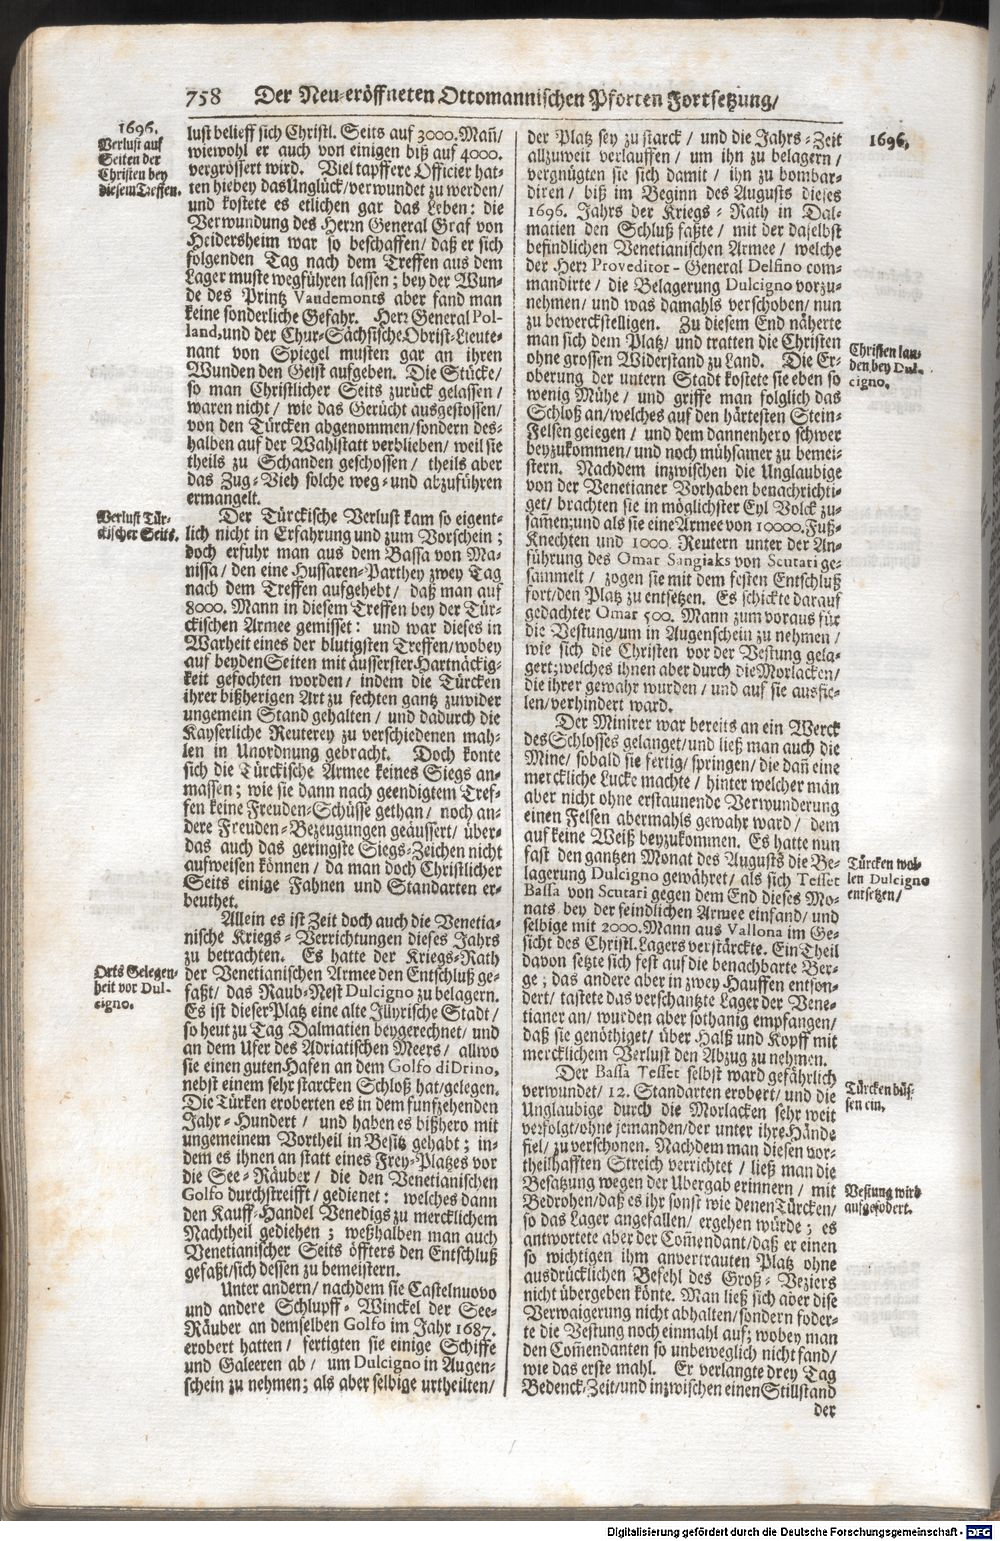 758 Der Neu-eröffneten Ottomannischen Pforten Fortsetzung/
1696.
Verlust auf
Seiten der
Christen bey
diesem Treffen.
lust belieff sich Christl. Seits auf 3000. Mañ/
wiewohl er auch von einigen biß auf 4000.
vergrössert wird. Viel tapffere Officier hat-
ten hiebey das Unglück/verwundet zu werden/
und kostete es etlichen gar das Leben: die
Verwundung des Herrn General Graf von
Heidersheim war so beschaffen/ daß er sich
folgenden Tag nach dem Treffen aus dem
Lager muste wegführen lassen; bey der Wun-
de des Printz Vaudemonts aber fand man
keine sonderliche Gefahr. Herr General Pol-
land, und der Chur-Sächsische Obrist-Lieute-
nant von Spiegel musten gar an ihren
Wunden den Geist aufgeben. Die Stücke/
so man Christlicher Seits zurück gelassen/
waren nicht/ wie das Gerücht ausgestossen/
von den Türcken abgenommen/sondern des-
halben auf der Wahlstatt verblieben/ weil sie
theils zu Schanden geschossen/ theils aber
das Zug-Vieh solche weg-und abzuführen
ermangelt.
Verlust Tür-
ckischer Seits.
Der Türckische Verlust kam so eigent-
lich nicht in Erfahrung und zum Vorschein;
doch erfuhr man aus dem Bassa von Ma-
nissa/ den eine Hussaren-Parthey zwey Tag
nach dem Treffen aufgehebt/ daß man auf
8000. Mann in diesem Treffen bey der Tür-
ckischen Armee gemisset: und war dieses in
Warheit eines der blutigsten Treffen/wobey
auf beyden Seiten mit äusserster Hartnäckig-
keit gefochten worden/ indem die Türcken
ihrer bißherigen Art zu fechten gantz zuwider
ungemein Stand gehalten/ und dadurch die
Kayserliche Reuterey zu verschiedenen mah-
len in Unordnung gebracht. Doch konte
sich die Türckische Armee keines Siegs an-
massen; wie sie dann nach geendigtem Tref-
fen keine Freuden-Schüsse gethan/ noch an-
dere Freuden-Bezeugungen geäussert/ über-
das auch das geringste Siegs-Zeichen nicht
aufweisen können/ da man doch Christlicher
Seits einige Fahnen und Standarten er-
beuthet.
Allein es ist Zeit doch auch die Venetia-
nische Kriegs-Verrichtungen dieses Jahrs
zu betrachten. Es hatte der Kriegs-Rath
Orts Gelegen-
heit vor Dul-
cigno.
der Venetianischen Armee den Entschluß ge-
faßt/ das Raub-Nest Dulcigno zu belagern.
Es ist dieser Platz eine alte Illyrische Stadt/
so heut zu Tag Dalmatien beygerechnet/ und
an dem Ufer des Adriatischen Meers/ allwo
sie einen guten Hafen an dem Golfo di Drino,
nebst einem sehr starcken Schloß hat/gelegen.
Die Türken eroberten es in dem funfzehenden
Jahr-Hundert/ und haben es bißhero mit
ungemeinem Vortheil in Besitz gehabt; in-
dem es ihnen an statt eines Frey-Platzes vor
die See-Räuber/ die den Venetianischen
Golfo durchstreifft/ gedienet: welches dann
den Kauff-Handel Venedigs zu mercklichem
Nachtheil gediehen; weßhalben man auch
Venetianischer Seits öffters den Entschluß
gefaßt/sich dessen zu bemeistern.
Unter andern/ nachdem sie Castelnuovo
und andere Schlupff-Winckel der See-
Räuber an demselben Golfo im Jahr 1687.
erobert hatten/ fertigten sie einige Schiffe
und Galeeren ab/ um Dulcigno in Augen-
schein zu nehmen; als aber selbige urtheilten/
1696.
der Platz sey zu starck/ und die Jahrs-Zeit
allzuweit verlauffen/ um ihn zu belagern/
vergnügten sie sich damit/ ihn zu bombar-
diren/ biß im Beginn des Augusts dieses
1696. Jahrs der Kriegs-Rath in Dal-
matien den Schluß faßte/ mit der daselbst
befindlichen Venetianischen Armee/ welche
der Herr Proveditor-General Delfino com-
mandirte/ die Belagerung Dulcigno vorzu-
nehmen/ und was damahls verschoben/ nun
zu bewerckstelligen. Zu diesem End näherte
man sich dem Platz/ und tratten die Christen
Christen lan-
den bey Dul-
cigno.
ohne grossen Widerstand zu Land. Die Er-
oberung der untern Stadt kostete sie eben so
wenig Mühe/ und griffe man folglich das
Schloß an/welches auf den härtesten Stein-
Felsen gelegen/ und dem dannenhero schwer
beyzukommen/ und noch mühsamer zu bemei-
stern. Nachdem inzwischen die Unglaubige
von der Venetianer Vorhaben benachrichti-
get/ brachten sie in möglichster Eyl Volck zu-
sam̃en; und als sie eine Armee von 10000. Fuß-
Knechten und 1000. Reutern unter der An-
führung des Omar Sangiaks von Scutari ge-
sammelt/ zogen sie mit dem festen Entschluß
fort/den Platz zu entsetzen. Es schickte darauf
gedachter Omar 500. Mann zum voraus für
die Vestung/um in Augenschein zu nehmen/
wie sich die Christen vor der Vestung gela-
gert; welches ihnen aber durch die Morlacken/
die ihrer gewahr wurden/ und auf sie ausfie-
len/verhindert ward.
Der Minirer war bereits an ein Werck
des Schlosses gelanget/und ließ man auch die
Mine/ sobald sie fertig/ springen/ die dañ eine
merckliche Lucke machte/ hinter welcher man
aber nicht ohne erstaunende Verwunderung
einen Felsen abermahls gewahr ward/ dem
auf keine Weiß beyzukommen. Es hatte nun
fast den gantzen Monat des Augusts die Be-
Türcken wol-
len Dulcigno
entsetzen/
lagerung Dulcigno gewähret/ als sich Tesset
Bassa von Scutari gegen dem End dieses Mo-
nats bey der feindlichen Armee einfand/ und
selbige mit 2000. Mann aus Vallona im Ge-
sicht des Christl. Lagers verstärckte. Ein Theil
davon setzte sich fest auf die benachbarte Ber-
ge; das andere aber in zwey Hauffen entson-
dert/ tastete das verschantzte Lager der Vene-
tianer an/ wurden aber sothanig empfangen/
daß sie genöthiget/ über Halß und Kopff mit
mercklichem Verlust den Abzug zu nehmen.
Türcken büs-
sen ein.
Der Bassa Tesset selbst ward gefährlich
verwundet/ 12. Standarten erobert/ und die
Unglaubige durch die Morlacken sehr weit
verfolgt/ohne jemanden/der unter ihre Hände
fiel/ zu verschonen. Nachdem man diesen vor-
theilhafften Streich verrichtet/ ließ man die
Vestung wird
aufgefodert.
Besatzung wegen der Ubergab erinnern/ mit
Bedrohen/daß es ihr sonst wie denen Türcken/
so das Lager angefallen/ ergehen würde; es
antwortete aber der Com̃endant/daß er einen
so wichtigen ihm anvertrauten Platz ohne
ausdrücklichen Befehl des Groß-Veziers
nicht übergeben könte. Man ließ sich aber dise
Verwaigerung nicht abhalten/sondern foder-
te die Vestung noch einmahl auf; wobey man
den Com̃endanten so unbeweglich nicht fand/
wie das erste mahl. Er verlangte drey Tag
Bedenck-Zeit/und inzwischen einen Stillstand
der
Digitalisierung gefördert durch die Deutsche Forschungsgemeinschaft - DFG